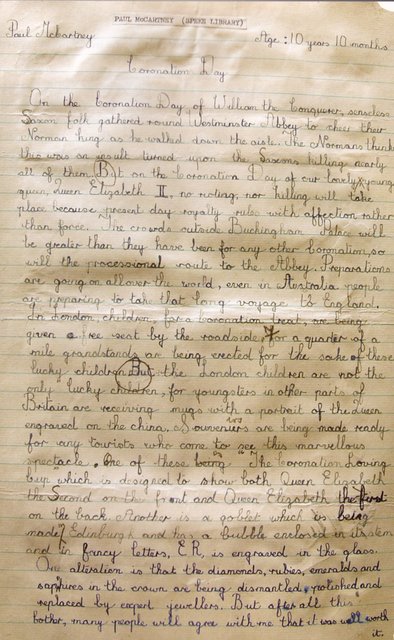 PAUL McCARTNEY (SPEKE LIBRARY)
Paul McCartney Age: 10 years 10 months.
Coronation Day
On the Coronation Day of William the Conqueror, senseless
Saxon folk gathered round Westminster Abbey to cheer their
Norman king as he walked down the aisle. The Normans thinking
this was an insult turned upon the Saxons killing nearly
all of them. But on the Coronation Day of our lovely young
queen, Queen Elizabeth II, no rioting, nor killing will take
place because present day royalty rule with affection rather
than force. The crowds outside Buckingham Palace will
be greater than they have been for any other Coronation, so
will the processional route to the Abbey. Preparations
are going on all over the world, even in Australia people
are preparing to take that long voyage to England.
In London, children, for a Coronation treat, are being
given a free seat by the roadside, For a quarter of a
mile grandstands are being erected for the sake of these
lucky children. But the London children are not the
only lucky children, for youngsters in other parts of
Britain are receiving mugs with a portrait of the Queen
engraved on the china. Souveniers are being made ready
for any tourists who come to see this marvellous
spectacle, one of these being "The Coronation Loving
Cup which is designed to show both Queen Elizabeth
the Second on the front and Queen Elizabeth the first
on the back. Another is a goblet which is being
made Edinburgh and has a bubble enclosed in its stem
and in fancy letters, E.R, is engraved in the glass.
One alteration is that the diamonds, rubies, emeralds and
sapphires in the crown are being dismantled, polished and
replaced by expert jewellers. But after all this
bother, many people will agree with me that it was well worth
it.